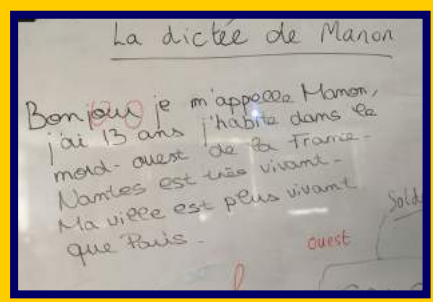 La dictée de Manon
Bonjour je m'appelle Manon,
j'ai 13 ans j'habite dans le
nord-ouest de la France.
Nantes est très vivant.
Ma ville est plus vivant
que Paris.
ouest
Sold